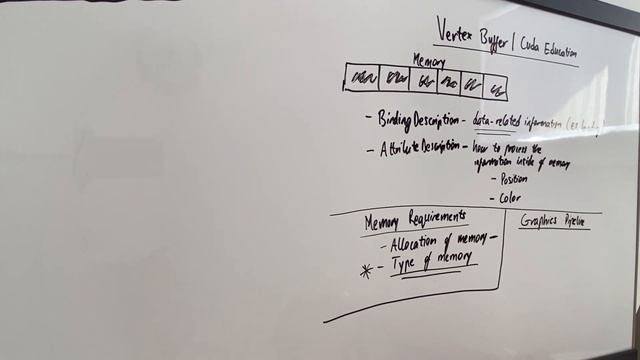 Vertex Buffer | Cuda Education
Memory
- Binding Description - data-related information (ex
- Attribute Description - how to process the
information inside of memory
- Position
- Color
Memory Requirements
- Allocation of memory -
* - Type of memory
Graphics Pipeline